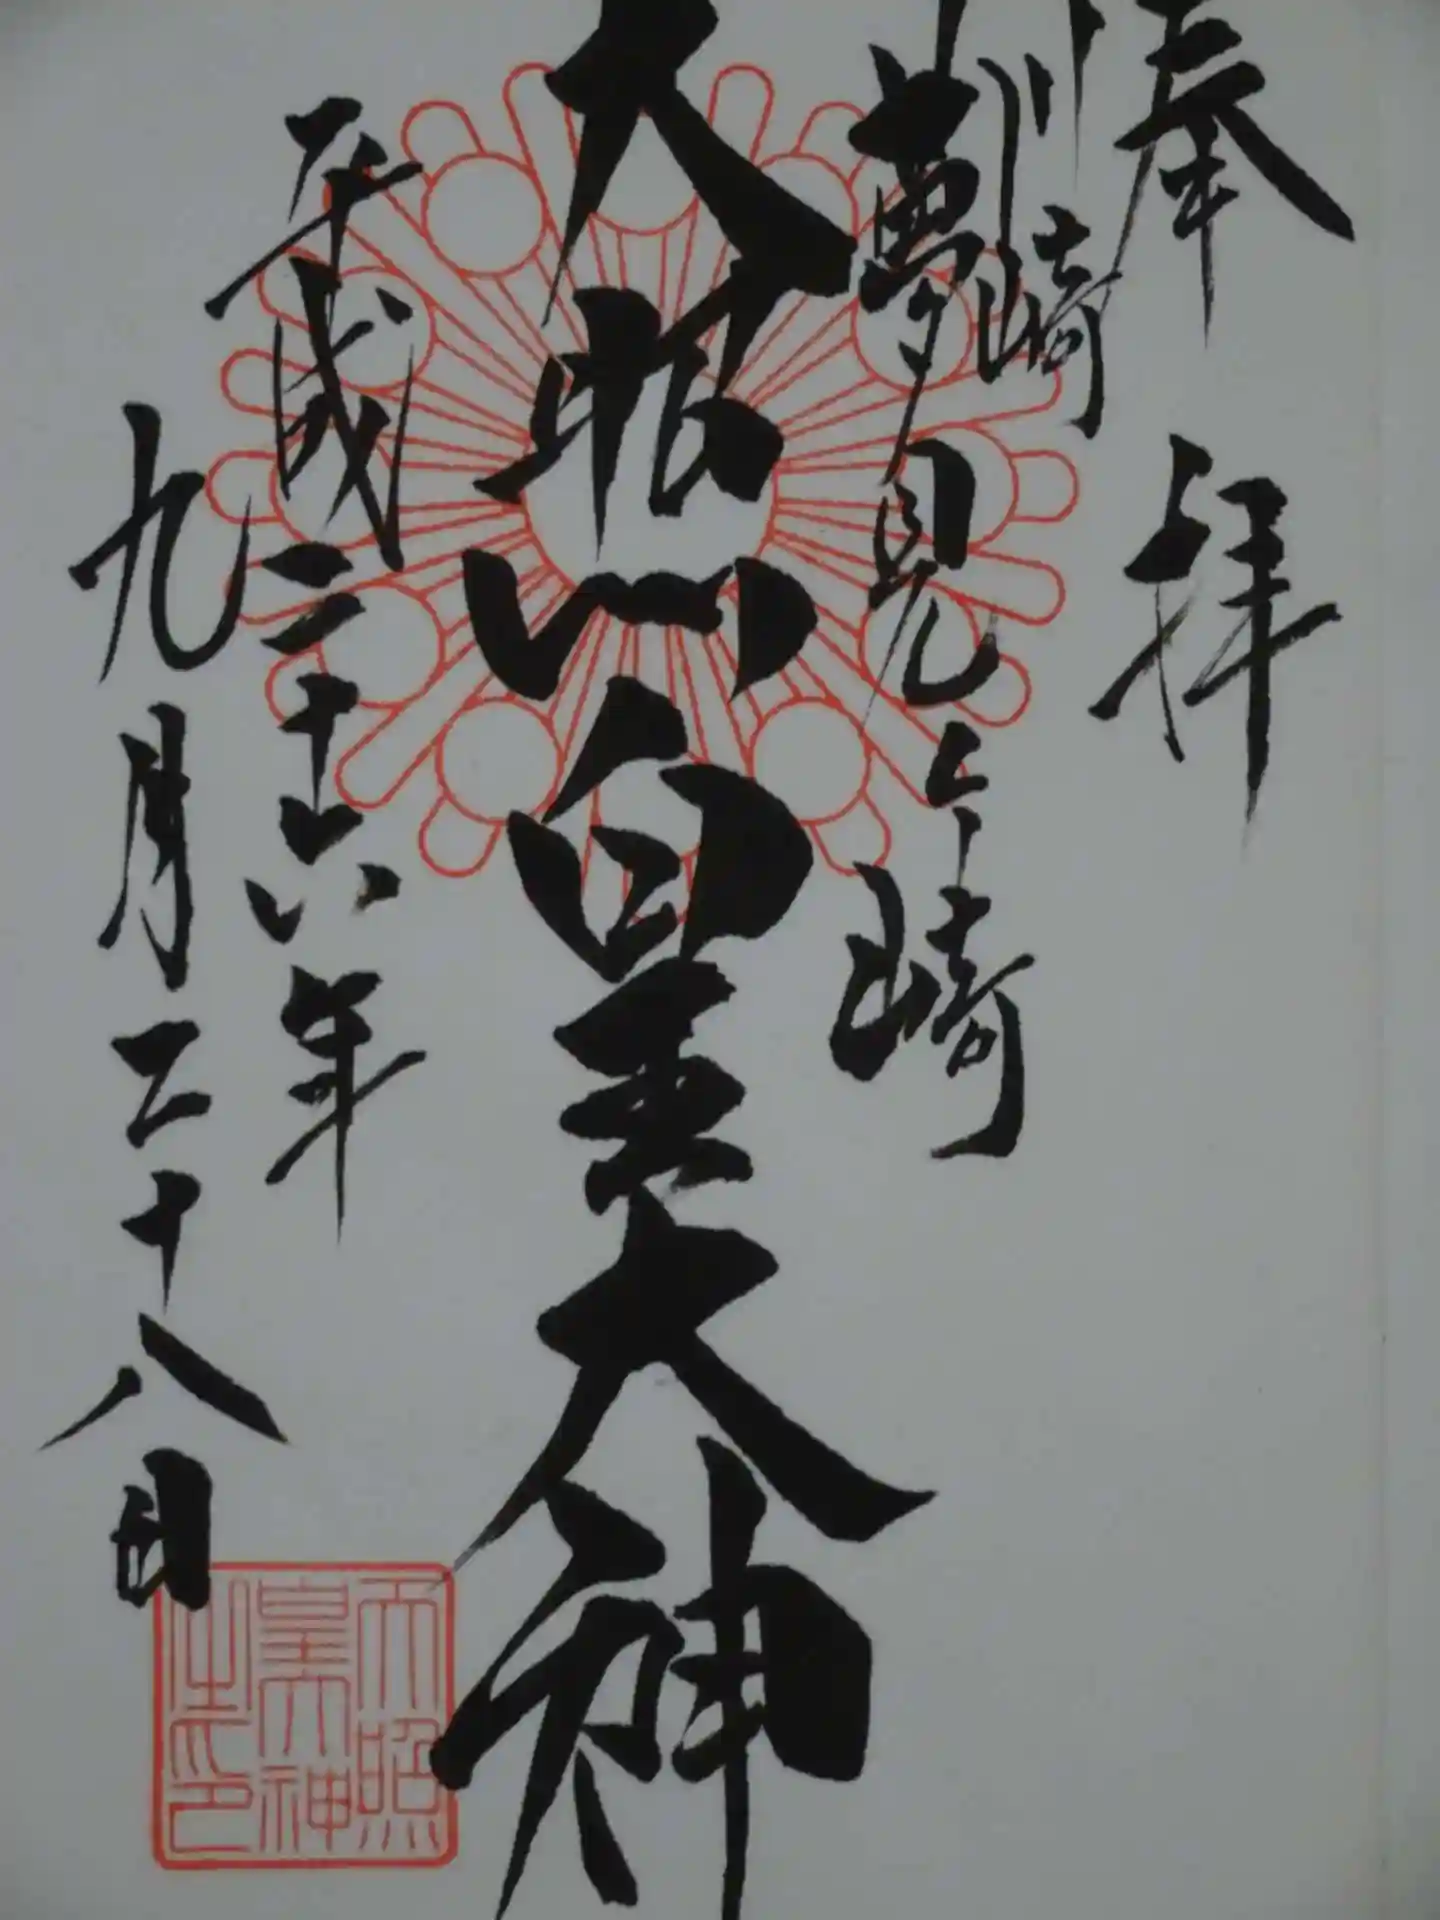 奉拝
川崎
夢見ヶ崎
天照皇大神
平成二十六年
九月二十八日
天照
皇大神
之印